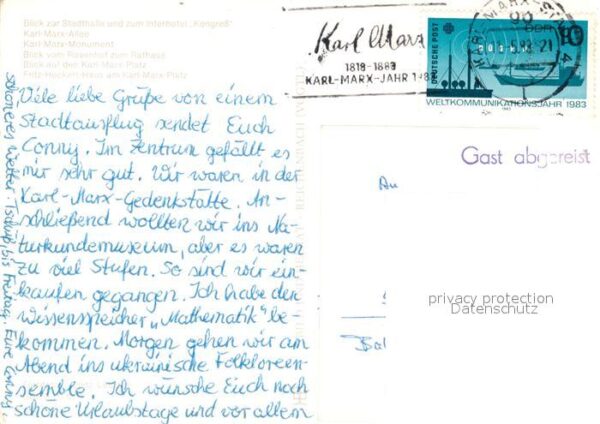 Blick zur Stadthalle und zum Interhotel „Kongreß"
Karl-Marx-Allee
Karl-Marx-Monument
Blick vom Rosenhof zum Rathaus
Blick auf den Karl-Marx-Platz
Fritz-Heckert-Haus am Karl-Marx-Platz
Viele liebe Grüße von einem
Stadtausflug sendet Euch
Conny. Im Zentrum gefällt es
mir sehr gut. Wir waren in der
Karl-Marx-Gedenkstätte. An-
schließend wollten wir ins Na-
turkundemuseum, aber es waren
zu viel Stufen. So sind wir ein-
kaufen gegangen. Ich habe den
Wissensspeicher „Mathematik" be-
kommen. Morgen gehen wir am
Abend ins ukrainische Folkloreen-
semble. Ich wünsche Euch noch
schöne Urlaubstage und vor allem
schöneres Wetter. Tschüß, bis Freitag. Eure Conny.
Karl Marx
1818-1883
KARL-MARX-JAHR 1983
DEUTSCHE POST
DDR
10
WELTKOMMUNIKATIONSJAHR 1983
KARL-MARX-STADT
Gast abgereist
An
privacy protection
Datenschutz